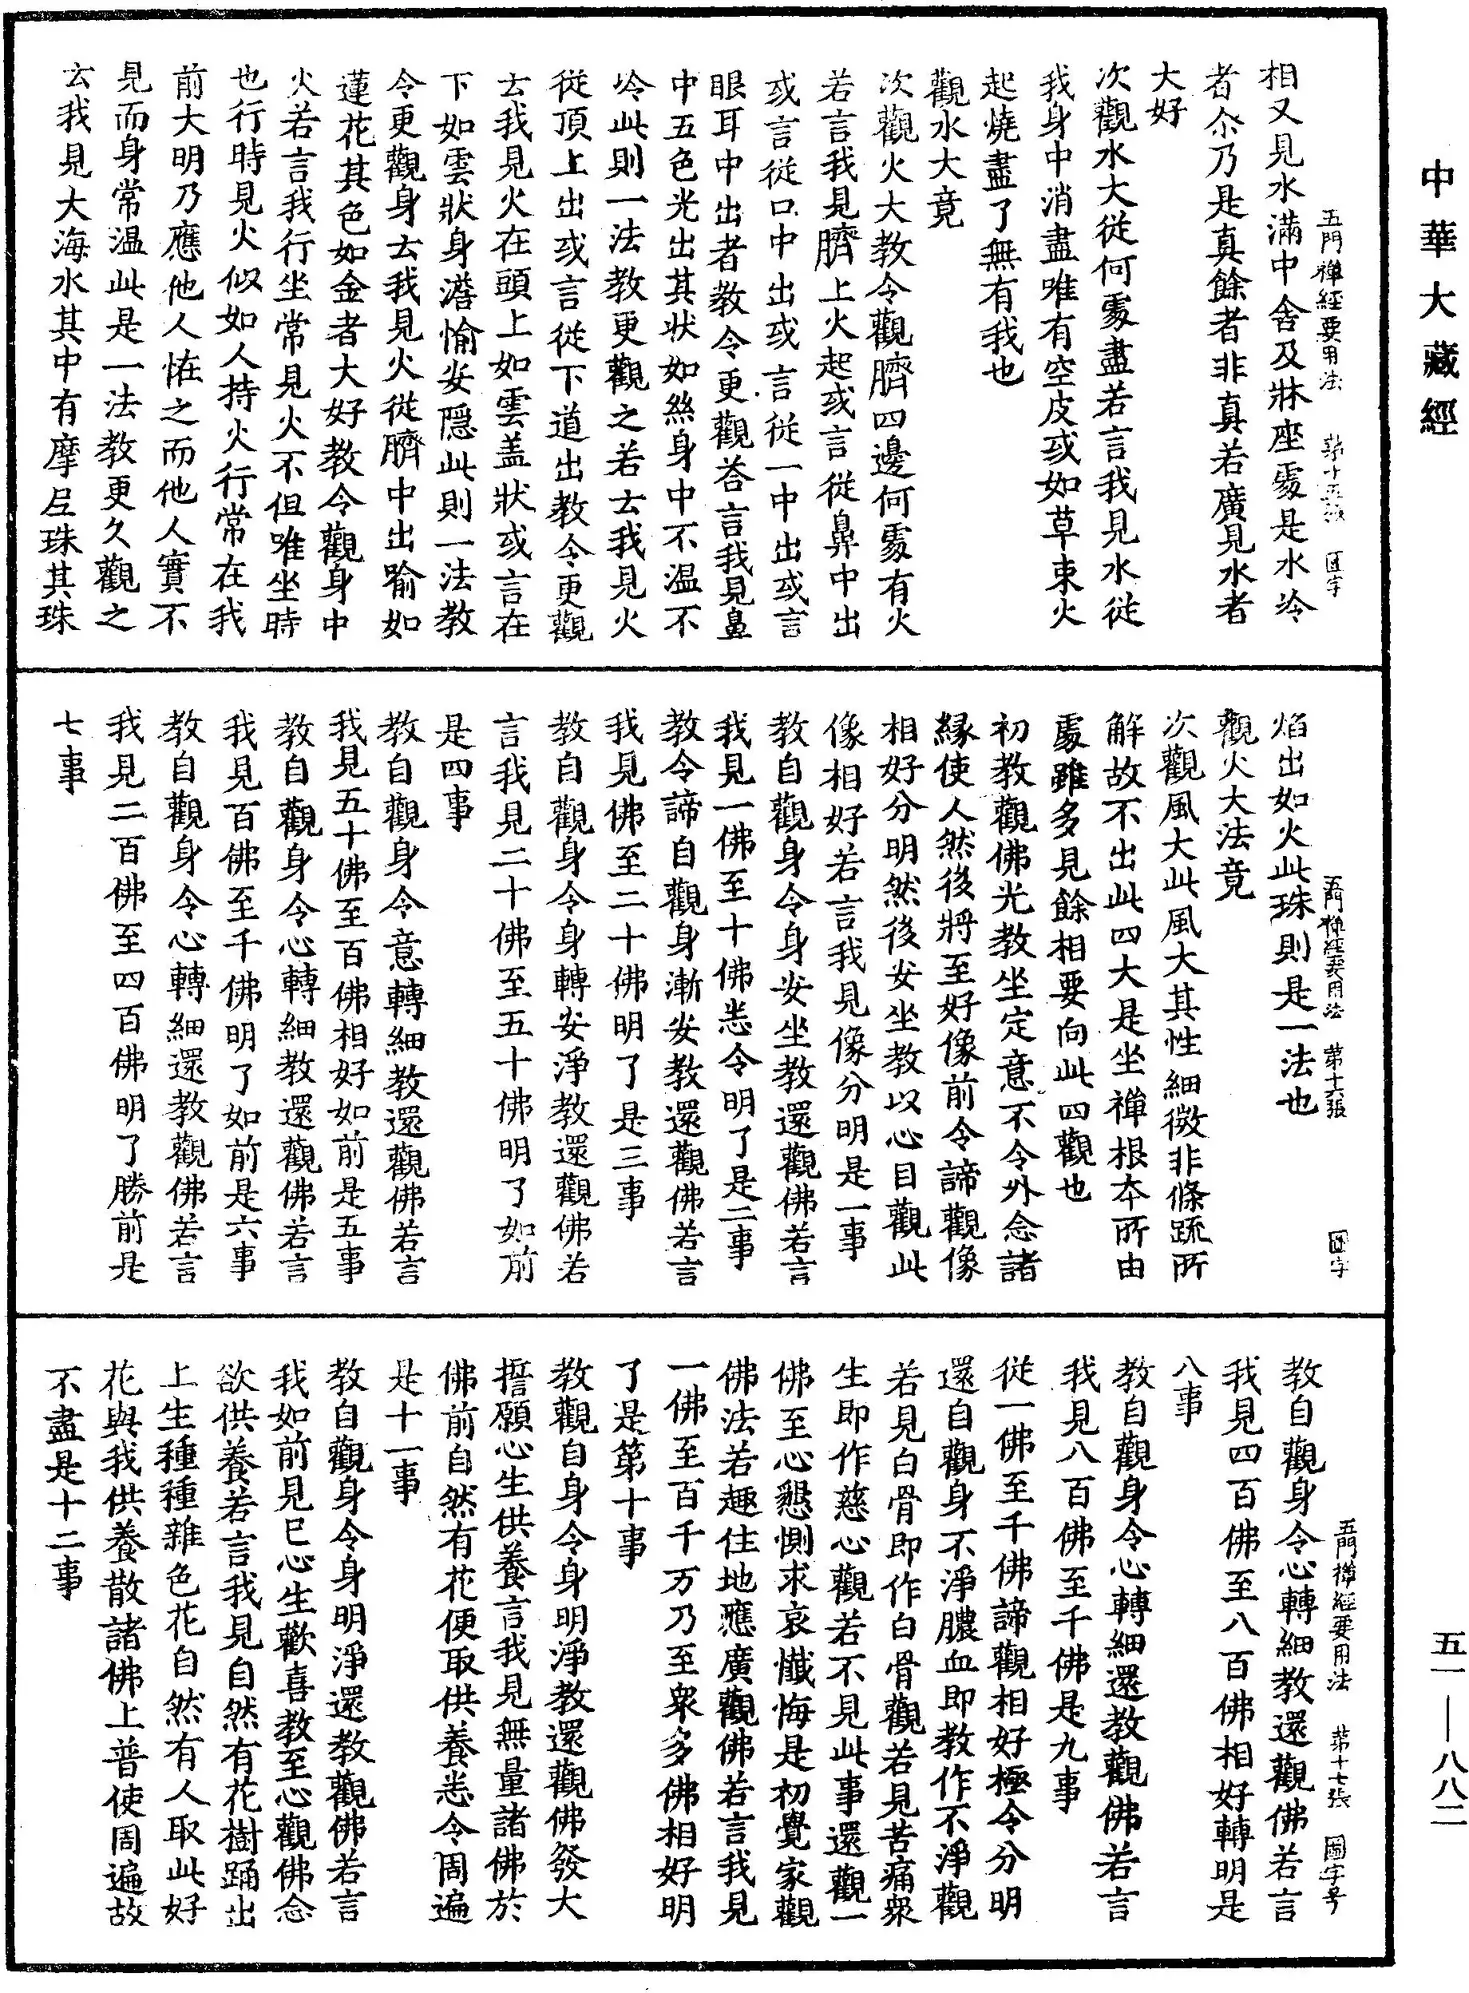 中華大藏經
五門禪經要用法 第十五張 圖字
相又見水滿中舍及牀座處是水冷
者尒乃是真餘者非真若廣見水者
大好
次觀水大從何處盡若言我見水從
我身中消盡唯有空皮或如草束火
起燒盡了無有我也
觀水大竟
次觀火大教令觀臍四邊何處有火
若言我見臍上火起或言從鼻中出
或言從口中出或言從一中出或言
眼耳中出者教令更觀荅言我見鼻
中五色光出其狀如絲身中不温不
冷此則一法教更觀之若去我見火
從頂上出或言從下道出教令更觀
去我見火在頭上如雲盖狀或言在
下如雲狀身濳愉安隱此則一法教
令更觀身去我見火從臍中出喻如
蓮花其色如金者大好教令觀身中
火若言我行坐常見火不但唯坐時
也行時見火似如人持火行常在我
前大明乃應他人恠之而他人實不
見而身常温此是一法教更久觀之
去我見大海水其中有摩𡰱珠其珠
五門禪經要用法 第十六張 圖字
焰出如火此珠則是一法也
觀火大法竟
次觀風大此風大其性細微非條疏所
解故不出此四大是坐禪根夲所由
處雖多見餘相要向此四觀也
初教觀佛光教坐定意不令外念諸
緣使人然後將至好像前令諦觀像
相好分明然後安坐教以心目觀此
像相好若言我見像分明是一事
教自觀身令身安坐教還觀佛若言
我見一佛至十佛悉令明了是二事
教令諦自觀身漸安教還觀佛若言
我見佛至二十佛明了是三事
教自觀身令身轉安淨教還觀佛若
言我見二十佛至五十佛明了如前
是四事
教自觀身令意轉細教還觀佛若言
我見五十佛至百佛相好如前是五事
教自觀身令心轉細教還觀佛若言
我見百佛至千佛明了如前是六事
教自觀身令心轉細還教觀佛若言
我見二百佛至四百佛明了勝前是
七事
五門禪經要用法 第十七張 圖字号
教自觀身令心轉細教還觀佛若言
我見四百佛至八百佛相好轉明是
八事
教自觀身令心轉細還教觀佛若言
我見八百佛至千佛是九事
從一佛至千佛諦觀相好極令分明
還自觀身不淨膿血即教作不淨觀
若見白骨即作白骨觀若見苦痛衆
生即作慈心觀若不見此事還觀一
佛至心懇惻求哀懺悔是初覺家觀
佛法若趣住地應廣觀佛若言我見
一佛至百千万乃至衆多佛相好明
了是第十事
教觀自身令身明淨教還觀佛發大
誓願心生供養言我見無量諸佛於
佛前自然有花便取供養悉令周遍
是十一事
教自觀身令身明淨還教觀佛若言
我如前見已心生歡喜教至心觀佛念
欲供養若言我見自然有花樹踊出
上生種種雜色花自然有人取此好
花與我供養散諸佛上普使周遍故
不盡是十二事
五一—八八二